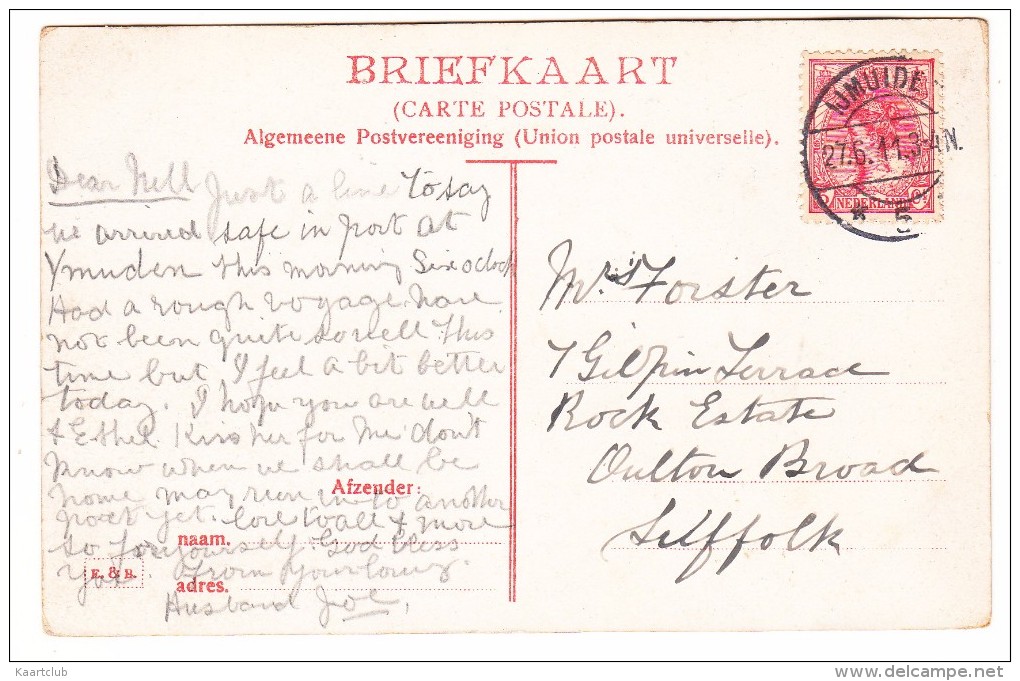 BRIEFKAART
(CARTE POSTALE).
Algemeene Postvereeniging (Union postale universelle).
IJMUIDE
27.6.11.3-4N.
5
NEDERLAND
Dear Nell Just a line to say
we arrived safe in port at
Ymuden this morning Six oclock
Had a rough voyage. have
not been quite so well this
time but I feel a bit better
today. I hope you are well
& Ethel. Kiss her for me dont
know when we shall be
home may run in to another
port yet. love to all & more
so for yourself. God bless
you. From your loving
Husband Joe,
Afzender:
naam.
adres.
E. & B.
Mrs Forster
7 Gilpin Terrace
Rock Estate
Oulton Broad
Suffolk
Kaartclub
www.delcampe.net